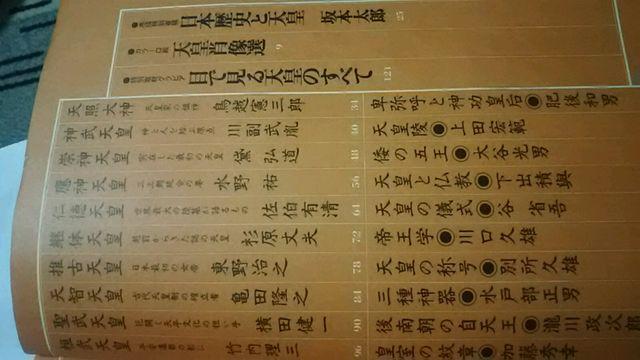 日本歴史と天皇 坂本太郎 25
●カラー口絵 天皇肖像選 9
目で見る天皇のすべて 121
天照大神 鳥越憲三郎 34
神武天皇 神と人を結ぶ原点 川副武胤 40
崇神天皇 実在した最初の天皇 黛 弘道 48
應神天皇 水野 祐 56
仁徳天皇 世界最大の陵墓が語るもの 佐伯有清 64
継体天皇 越前からきた謎の天皇 杉原丈夫 72
推古天皇 日本最初の女帝 東野治之 78
天智天皇 古代天皇制の確立者 亀田隆之 84
聖武天皇 花開く天平文化の担い手 横田健一 90
桓武天皇 竹内理三 96
卑弥呼と神功皇后◉肥後和男
天皇陵◉上田宏範
倭の五王◉大谷光男
天皇と仏教◉下出積與
天皇の儀式◉谷 省吾
帝王学◉川口久雄
天皇の称号◉別所久雄
三種神器◉水戸部正男
後南朝の自天王◉瀧川政次郎
皇室の紋章◉加藤秀幸